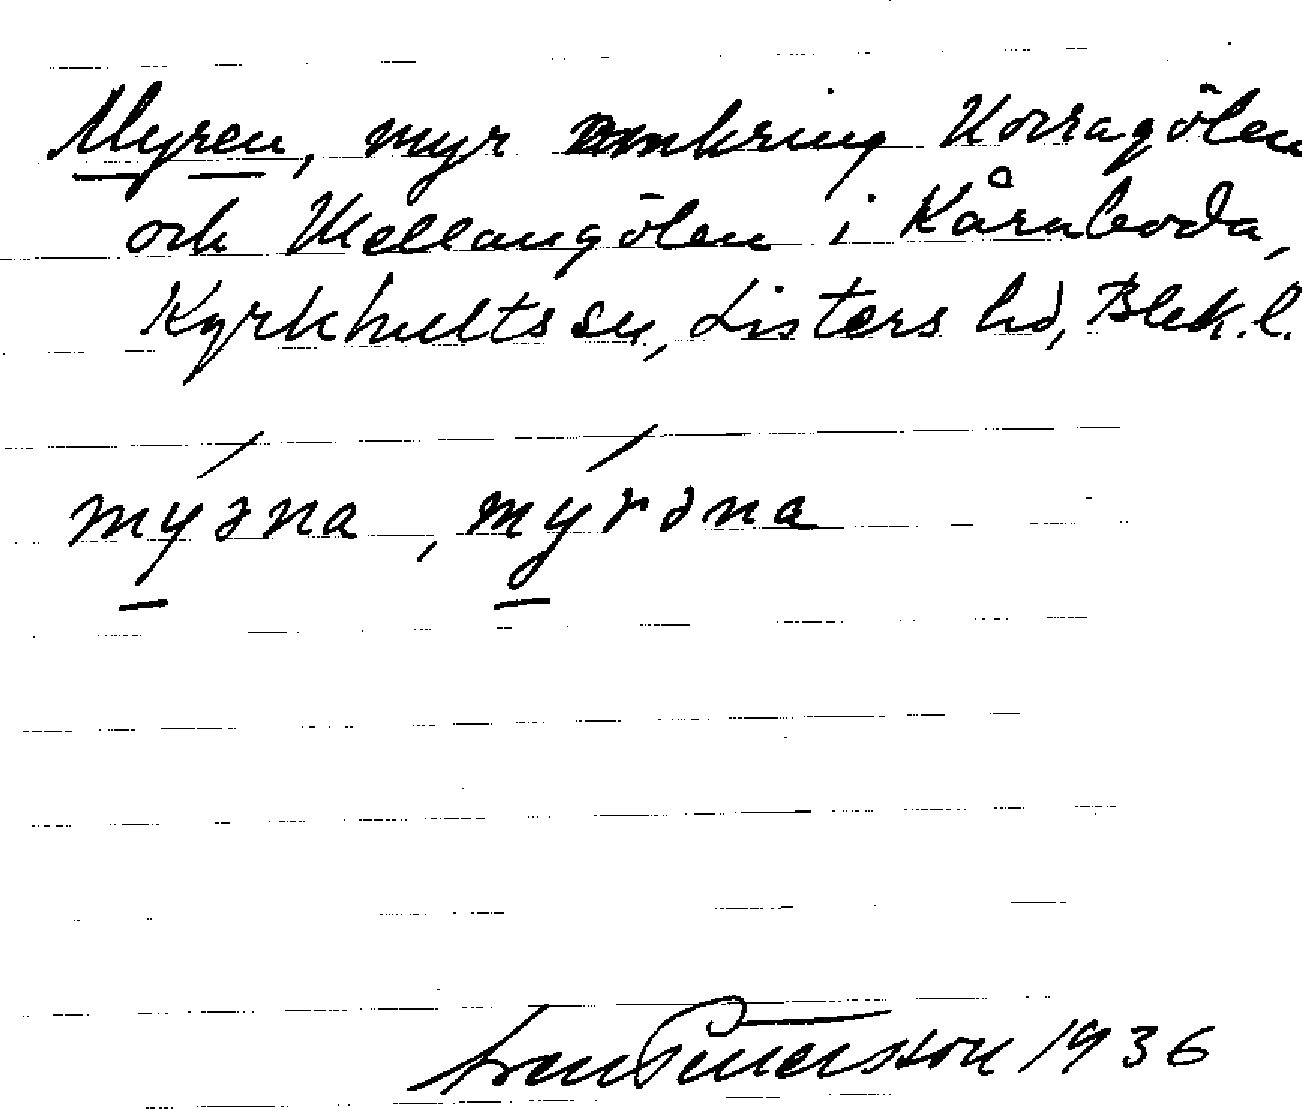 Myren, myr omkring Korragölen
och Mellangölen i Kåraboda,
Kyrkhults sn, Listers hd, Blek. l.
mýəna, mýrəna
1936